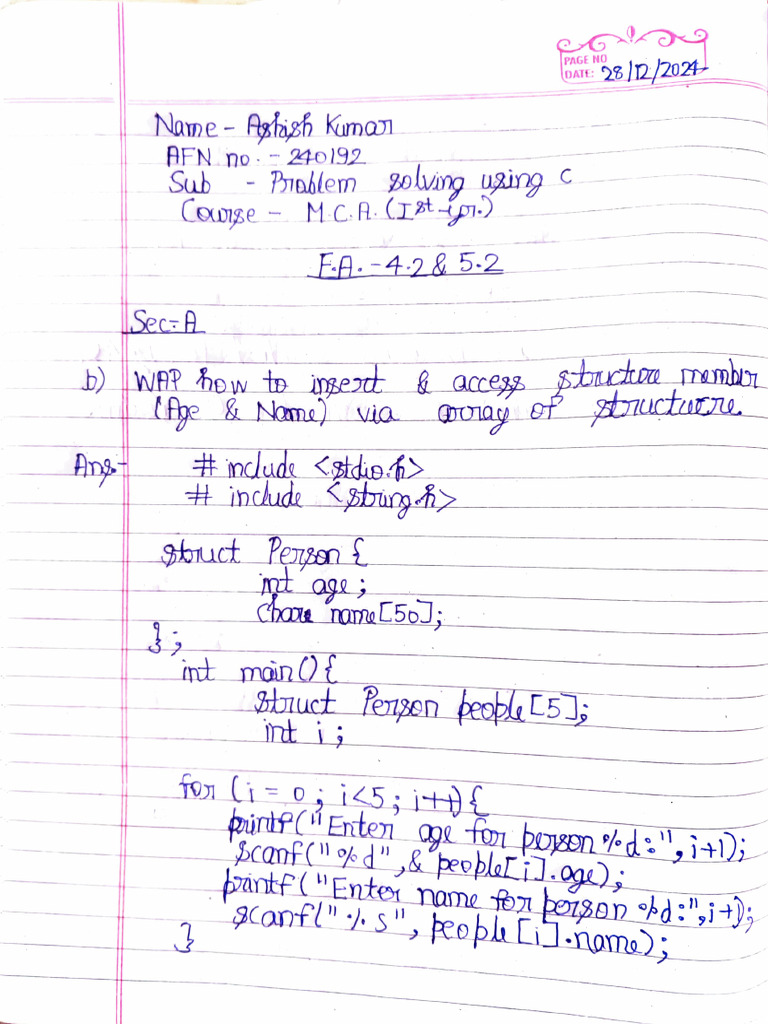 PAGE NO
DATE: 28/12/2024
Name - Ashish Kumar
AFN no. - 240192
Sub - Problem solving using C
Course - M.C.A. (Ist-yr.)
F.A. - 4.2 & 5.2
Sec=A
b) WAP how to insert & access structure member
(Age & Name) via array of structure.
Ans- # include <stdio.h>
# include <string.h>
struct Person {
int age;
char name[50];
};
int main() {
struct Person people[5];
int i;
for (i = 0; i<5; i++) {
printf("Enter age for person %d:", i+1);
scanf("%d", & people[i].age);
printf("Enter name for person %d:", i+);
scanf("%s", people[i].name);
}